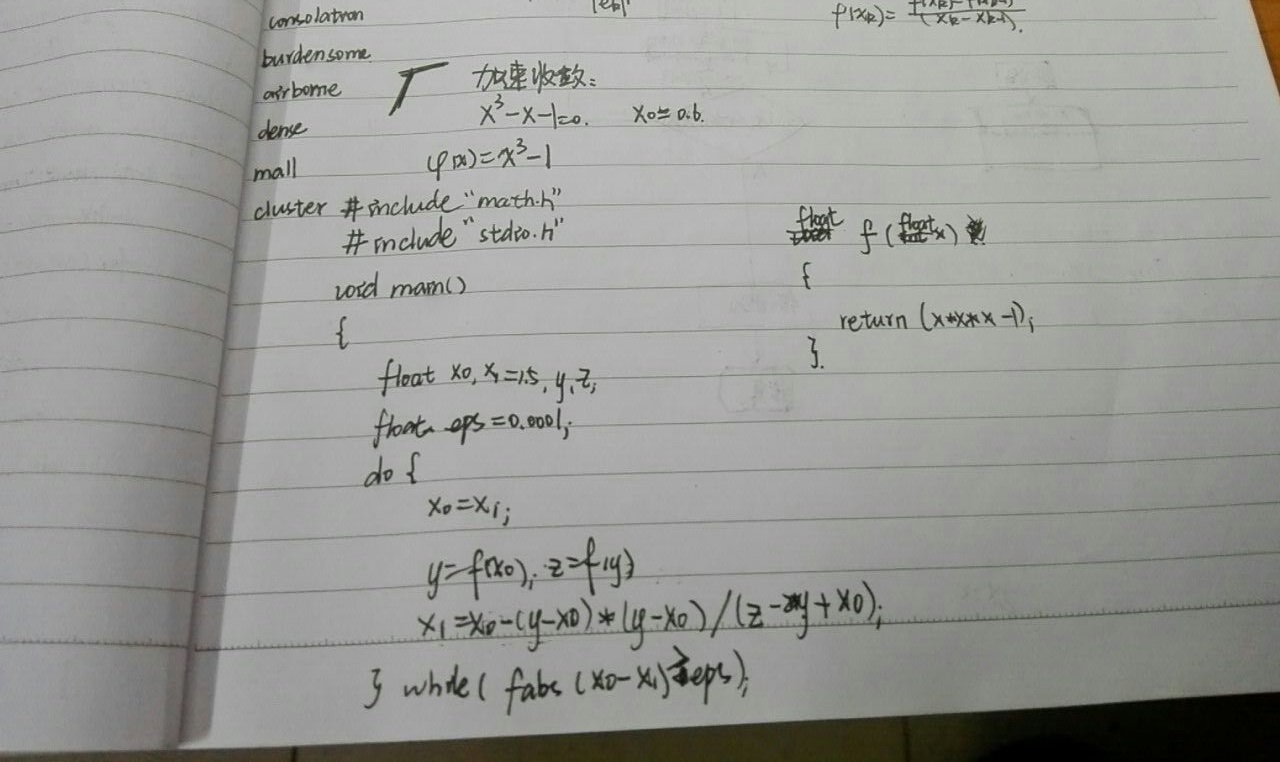 consolation
burdensome
airborne
dense
mall
cluster
加速收敛:
x³-x-1=0. x0=0.6.
φ(x)=x³-1
#include "math.h"
#include "stdio.h"
void main()
{
float x0, x1=1.5, y, z;
float eps=0.0001;
do {
x0=x1;
y=f(x0); z=f(y)
x1=x0-(y-x0)*(y-x0)/(z-2*y+x0);
} while( fabs (x0-x1)≥eps);
float f(float x)
{
return (x*x*x-1);
}.